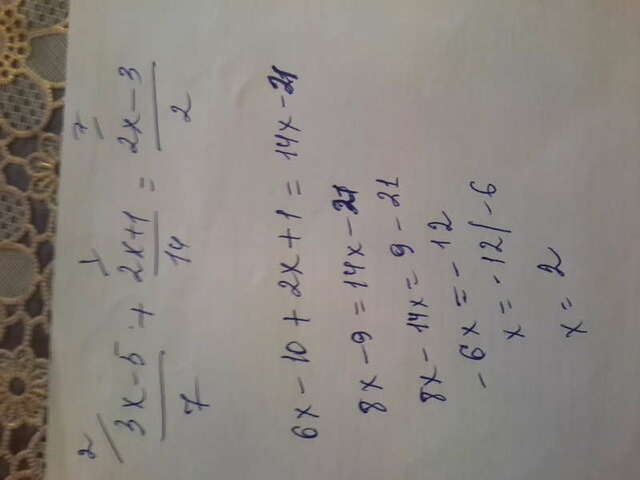 2/ 3x-5/7 + 1/ 2x+1/14 = 7/ 2x-3/2
6x-10+2x+1=14x-21
8x-9=14x-21
8x-14x=9-21
-6x=-12
x=-12/-6
x=2